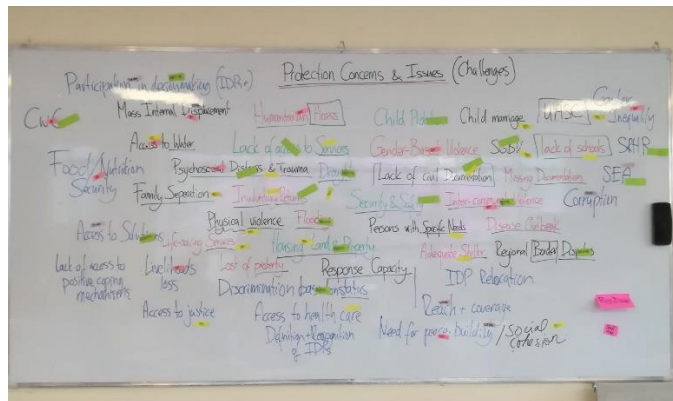 Protection Concerns & Issues (Challenges)
Participation in
Gender Inequality
CwC
Mass Internal Displacement
Humanitarian Access
Child
Child marriage
UASC
Access to Water
Lack of access to Services
Gender-Based Violence
SGBV
lack of schools
SRHR
Food/Nutrition Security
Psychosocial Distress & Trauma
Drought
Lack of civil Documentation
Missing Documentation
SEA
Family Seperation
Involuntary Returns
Security & Safety
Inter-communal Violence
Corruption
Physical Violence
Floods
Persons with Specific Needs
Disease Outbreak
Access to Solutions
Life-saving Services
Housing Land & Property
Adequate Shelter
Regional Border Disputes
Lack of access to positive coping mechanisms
Livelihoods loss
Loss of property
Response Capacity
IDP Relocation
Discrimination based on status
Reach + coverage
Access to justice
Access to health care
Need for peace-building / Social cohesion
Definition + Recognition of IDPs